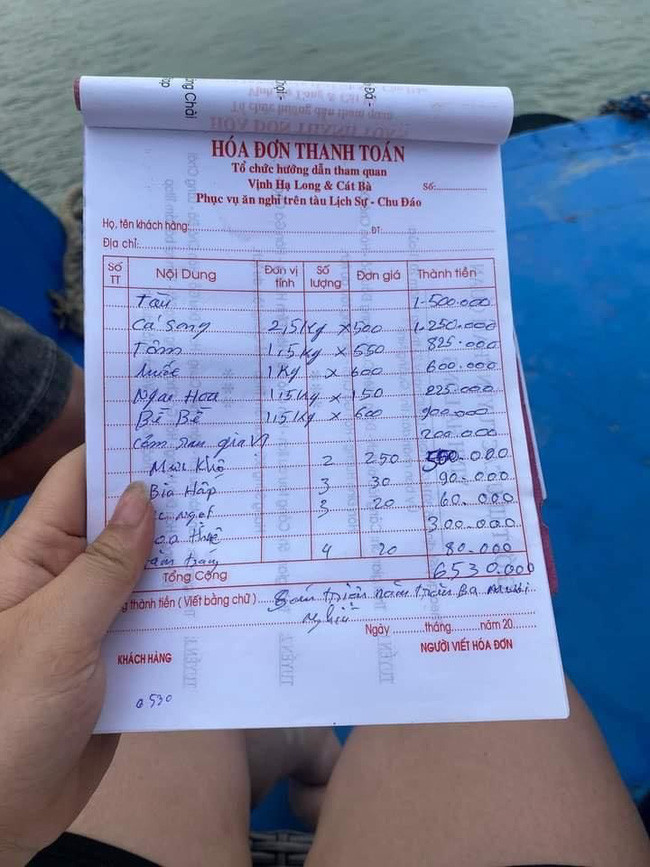 HÓA ĐƠN THANH TOÁN
Tổ chức hướng dẫn tham quan
Vịnh Hạ Long & Cát Bà
Số:
Phục vụ ăn nghỉ trên tàu Lịch Sự - Chu Đáo
Họ, tên khách hàng: ĐT:
Địa chỉ:
Số TT Nội Dung Đơn vị tính Số lượng Đơn giá Thành tiền
Tàu 1.500.000
Cá Song 2,5Kg x 500 1.250.000
Tôm 1,5Kg x 550 825.000
Mực 1Kg x 600 600.000
Ngao Hoa 1,5Kg x 150 225.000
Bề Bề 1,5Kg x 600 900.000
Cơm rau gia vị 200.000
Mực Khô 2 250 500.000
Bia Hấp 3 30 90.000
ngọt 3 20 60.000
Thuê 300.000
4 20 80.000
Tổng Cộng 6530.000
thành tiền ( Viết bằng chữ ) Sáu triệu năm trăm Ba mươi
nghìn
Ngày tháng năm 20
KHÁCH HÀNG NGƯỜI VIẾT HÓA ĐƠN
6 530